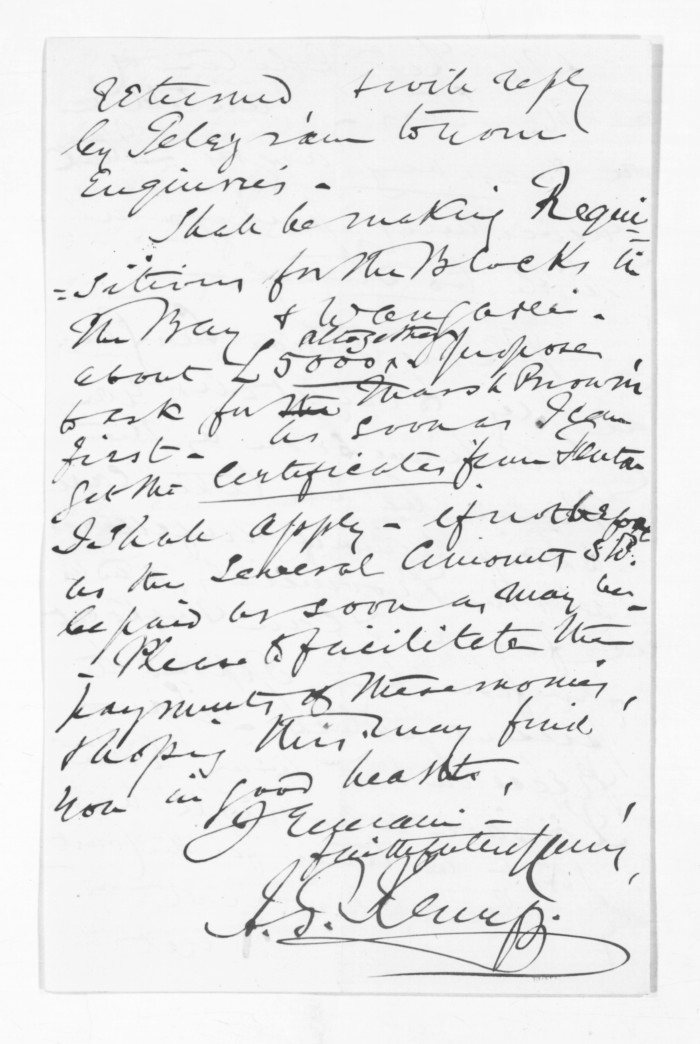 returned, & will reply
by Telegram to your
Enquiries -
Shall be making Requi
=sitions for the Blocks in
The Bay & Wangarei -
altogether
about £5000.. propose
to ask for the Marsh Brown
first - as soon as I can
get the Certificates from Fenton
I shall apply - if not before
as the several Amounts Sh.
be paid as soon as may be -
Please to facilitate the
payments of these monies,
& hoping this may find
you in good health,
I Remain -
faithfully yours,
H. T. Kemp.